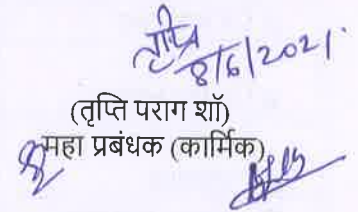 तृप्ति
8/6/2021
(तृप्ति पराग शॉ)
महा प्रबंधक (कार्मिक)